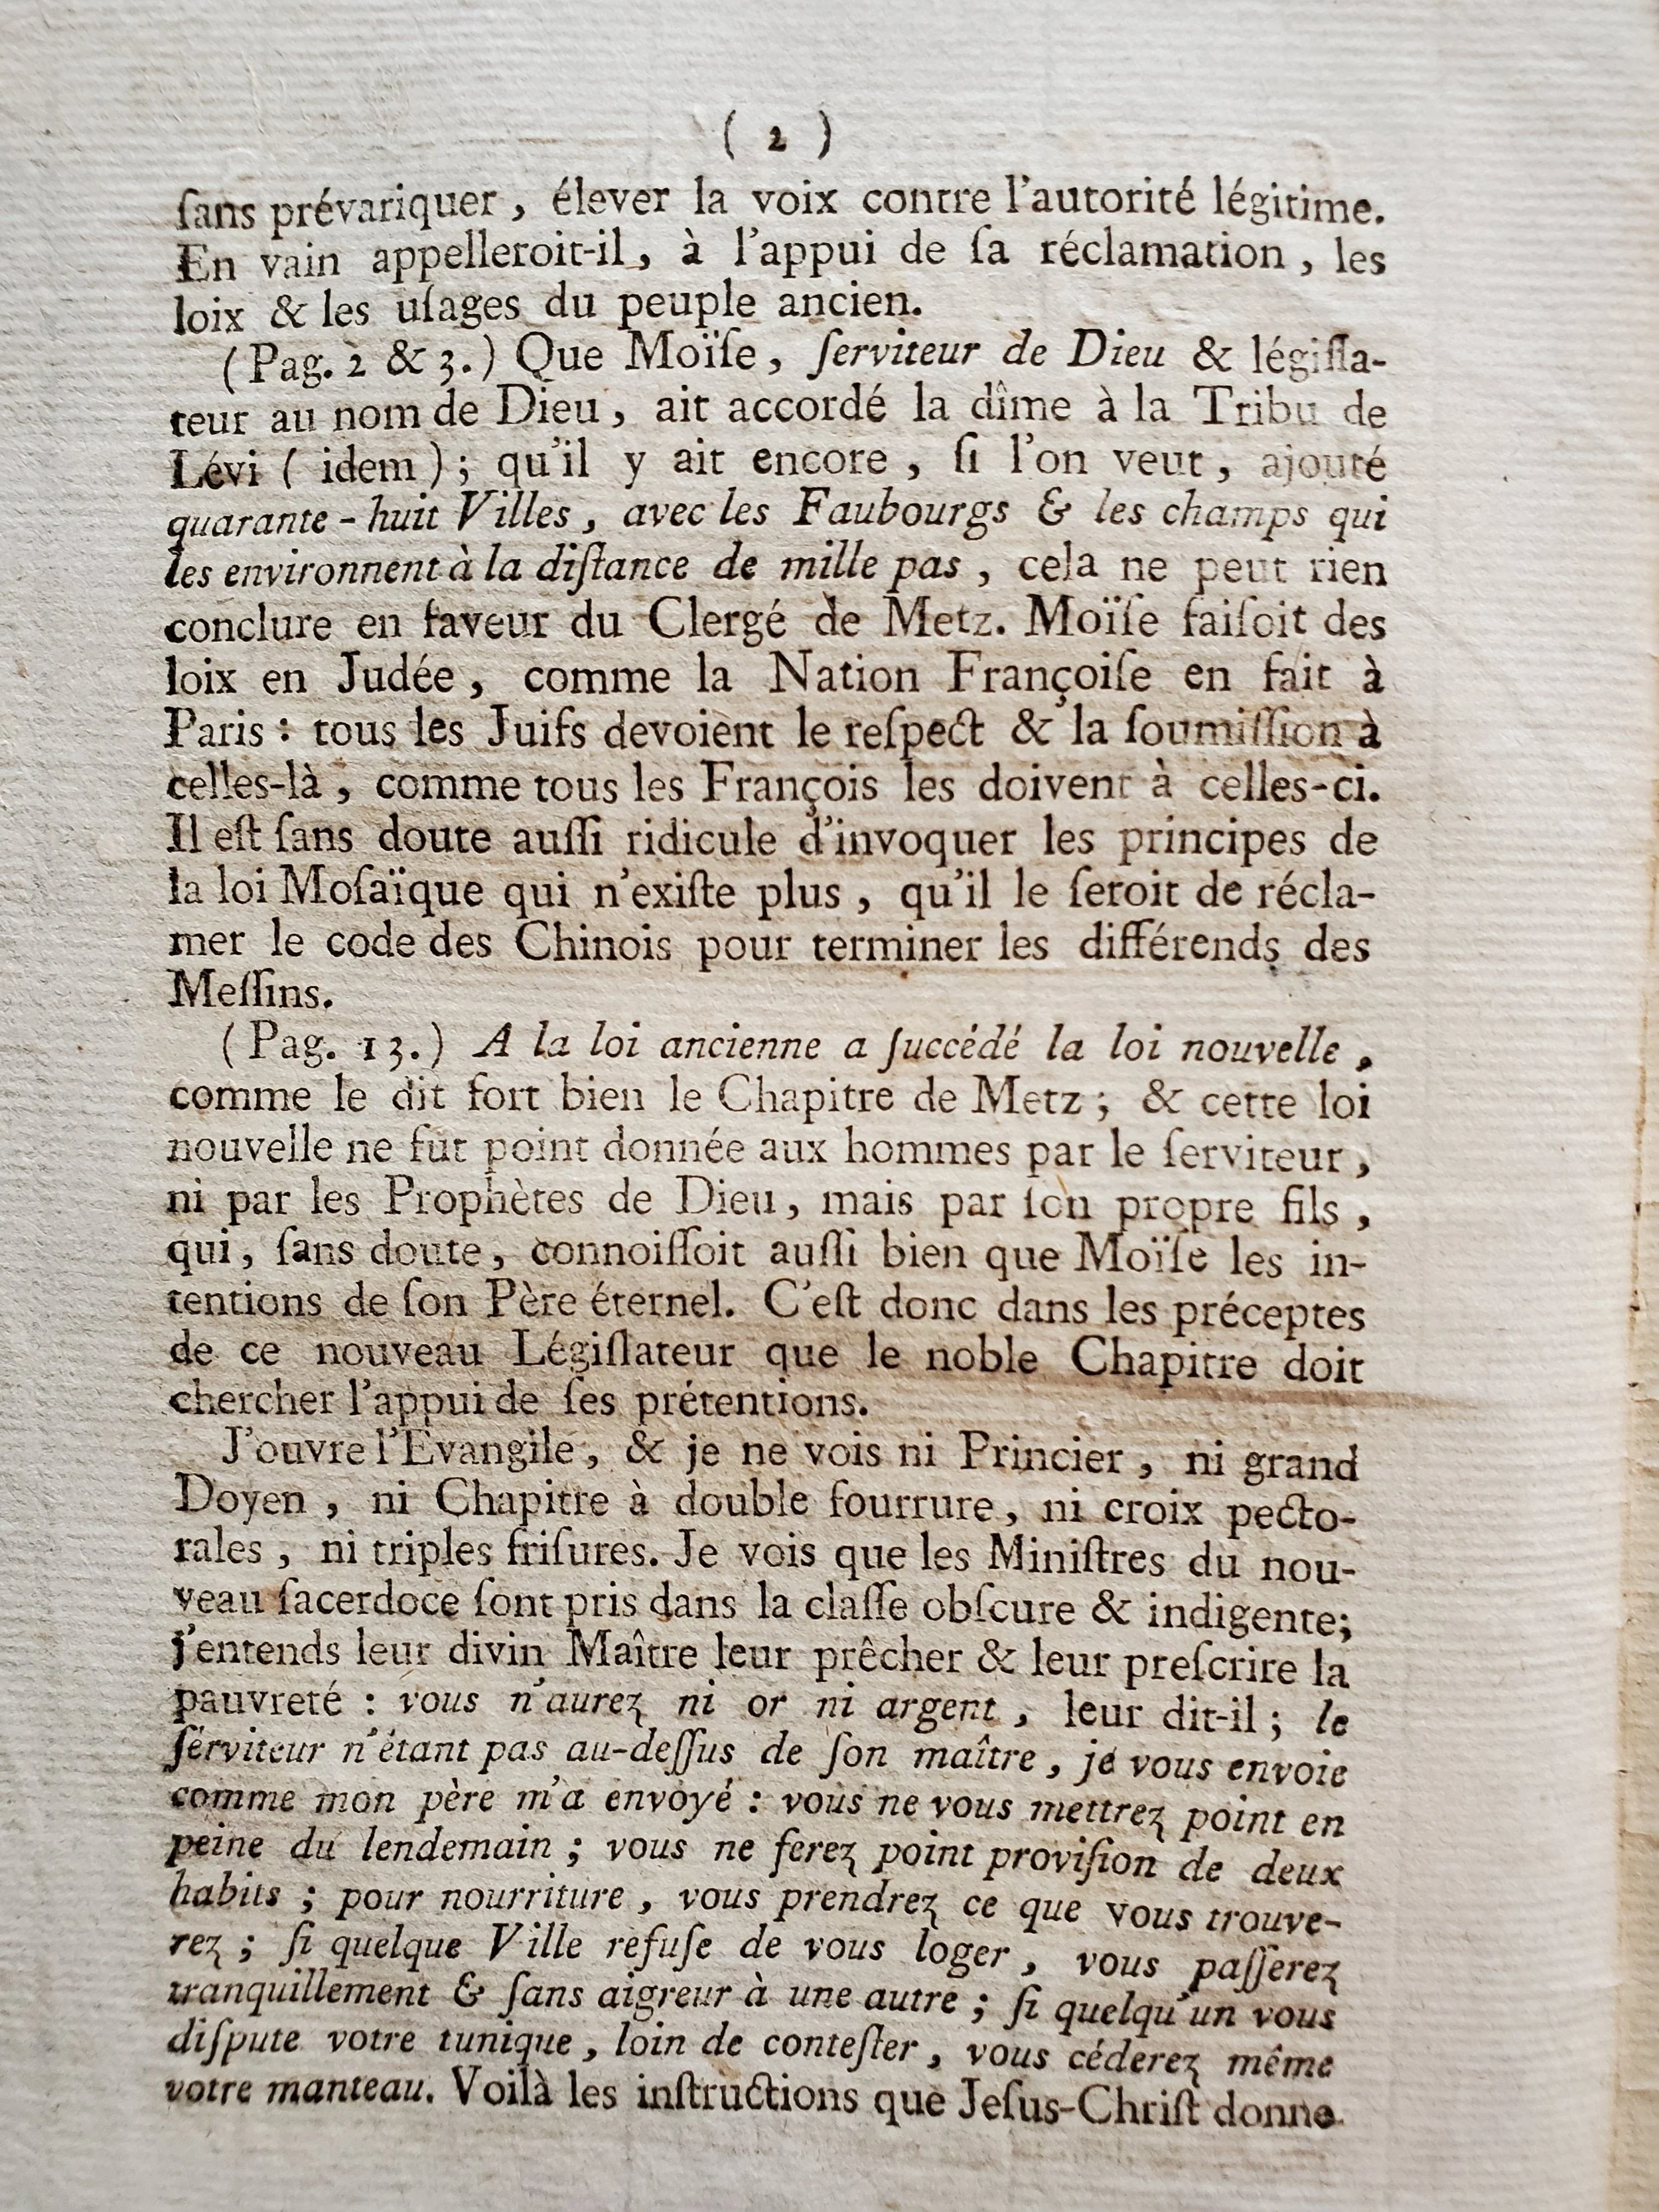 ( 2 )
ſans prévariquer , élever la voix contre l'autorité légitime.
En vain appelleroit-il, à l'appui de ſa réclamation , les
loix & les uſages du peuple ancien.
(Pag. 2 & 3.) Que Moïſe, ſerviteur de Dieu & légiſla-
teur au nom de Dieu, ait accordé la dîme à la Tribu de
Lévi ( idem ) ; qu'il y ait encore , ſi l'on veut, ajouté
quarante - huit Villes , avec les Faubourgs & les champs qui
les environnent à la diſtance de mille pas , cela ne peut rien
conclure en faveur du Clergé de Metz. Moïſe faiſoit des
loix en Judée, comme la Nation Françoiſe en fait à
Paris : tous les Juifs devoient le reſpect & la ſoumiſſion à
celles-là , comme tous les François les doivent à celles-ci.
Il eſt ſans doute auſſi ridicule d'invoquer les principes de
la loi Moſaïque qui n'exiſte plus , qu'il le ſeroit de récla-
mer le code des Chinois pour terminer les différends des
Meſſins.
( Pag. 13.) A la loi ancienne a ſuccédé la loi nouvelle ,
comme le dit fort bien le Chapitre de Metz ; & cette loi
nouvelle ne fut point donnée aux hommes par le ſerviteur ,
ni par les Prophètes de Dieu, mais par ſon propre fils ,
qui, ſans doute, connoiſſoit auſſi bien que Moïſe les in-
tentions de ſon Père éternel. C'eſt donc dans les préceptes
de ce nouveau Légiſlateur que le noble Chapitre doit
chercher l'appui de ſes prétentions.
J'ouvre l'Evangile, & je ne vois ni Princier , ni grand
Doyen , ni Chapitre à double fourrure, ni croix pecto-
rales , ni triples friſures. Je vois que les Miniſtres du nou-
veau ſacerdoce ſont pris dans la claſſe obſcure & indigente;
j'entends leur divin Maître leur prêcher & leur preſcrire la
pauvreté : vous n'aurez ni or ni argent , leur dit-il ; le
ſerviteur n'étant pas au-deſſus de ſon maître , je vous envoie
comme mon père m'a envoyé : vous ne vous mettrez point en
peine du lendemain ; vous ne ferez point proviſion de deux
habits ; pour nourriture , vous prendrez ce que vous trouve-
rez ; ſi quelque Ville refuſe de vous loger , vous paſſerez
tranquillement & ſans aigreur à une autre ; ſi quelqu'un vous
diſpute votre tunique , loin de conteſter , vous céderez même
votre manteau. Voilà les inſtructions que Jeſus-Chriſt donne